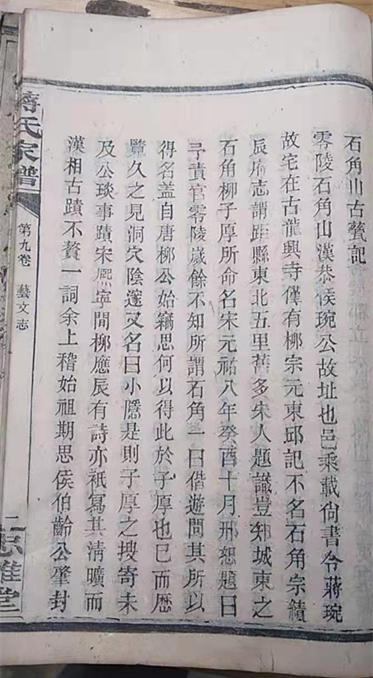 石角山古蹟記
零陵石角山漢恭侯琬公故址也邑乘載尚書令蔣琬
故宅在古龍興寺僅有柳宗元東邱記不名石角宗績
辰府志謂距縣東北五里舊多宋人題識豈知城東之
石角柳子厚所命名宋元祐八年癸酉十月邢恕題曰
予責官零陵歲餘不知所謂石角一日借遊問其所以
得名蓋自唐柳公始竊思何以得此於子厚也已而歷
覽久之見洞穴陰邃又名曰小隱是則子厚之搜寄未
及公琰事蹟宋熙寧間柳應辰有詩亦祇寫其清曠而
漢相古蹟不贅一詞余上稽始祖期思侯伯齡公肇封
蔣氏家譜
第九卷
藝文志
二
堂